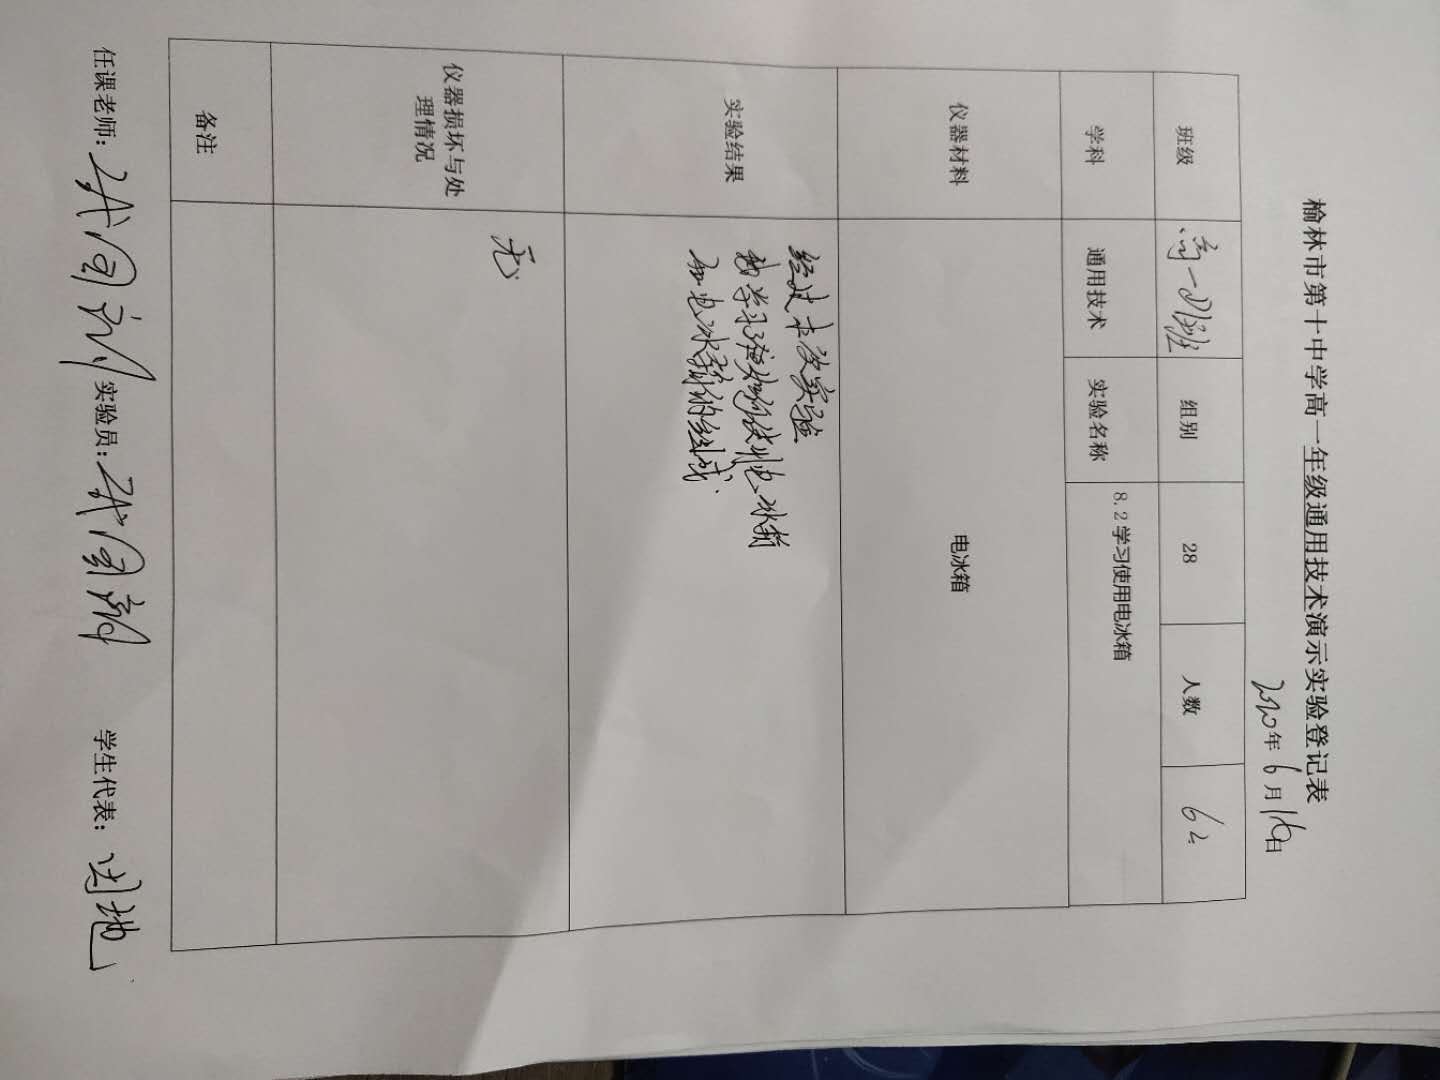 榆林市第十中学高一年级通用技术演示实验登记表
2020年6月16日
班级 组别 28 人数 62
学科 通用技术 实验名称 8.2学习使用电冰箱
仪器材料 电冰箱
实验结果 经过本次实验
我学习了如何使用电冰箱
和电冰箱的组成.
仪器损坏与处
理情况 无
备注
任课老师: 实验员: 学生代表: